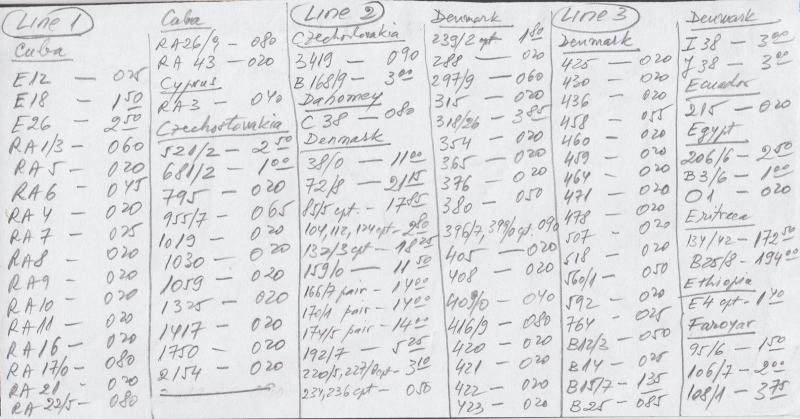 Line 1
Cuba
E12 — 025
E18 — 1 50
E26 — 2 50
RA1/3 — 060
RA5 — 020
RA6 — 045
RA4 — 020
RA7 — 025
RA8 — 020
RA9 — 020
RA10 — 020
RA11 — 020
RA16 — 020
RA17/0 — 080
RA21 — 020
RA22/5 — 080
Cuba
RA26/9 — 080
RA43 — 020
Cyprus
RA3 — 040
Czechoslovakia
521/2 — 2 50
681/2 — 1 00
795 — 020
955/7 — 065
1019 — 020
1030 — 020
1059 — 020
1325 — 020
1417 — 020
1750 — 020
2154 — 020
Line 2
Czechoslovakia
2419 — 090
B168/9 — 3 00
Dahomey
C38 — 080
Denmark
38/0 — 11 00
72/8 — 21 15
85/5 cpt. — 17 85
104,112,124 cpt — 2 80
132/3 cpt — 18 25
159/0 — 11 50
166/7 pair — 14 00
170/1 pair — 14 00
174/5 pair — 14 00
192/7 — 5 25
220/5,227/8 cpt — 3 10
234,236 cpt — 050
Denmark
239/2 cpt 1 80
288 — 020
297/9 — 060
315 — 020
318/26 — 3 85
354 — 020
365 — 020
376 — 020
380 — 050
396/7,399/0 cpt. 090
405 — 020
408 — 020
409/0 — 040
416/9 — 080
420 — 020
421 — 020
422 — 020
423 — 020
Line 3
Denmark
425 — 020
430 — 020
436 — 020
458 — 055
460 — 020
459 — 020
464 — 020
471 — 020
478 — 020
507 — 020
518 — 020
560/1 — 050
592 — 020
764 — 025
B12/3 — 050
B14 — 025
B15/7 — 1 35
B25 — 085
Denmark
I38 — 3 00
J38 — 3 00
Ecuador
215 — 020
Egypt
206/6 — 2 50
B3/6 — 1 00
O1 — 020
Eritrea
134/42 — 172 50
B25/8 — 194 00
Ethiopia
E4 cpt — 1 40
Faroyar
95/6 — 1 50
106/7 — 2 00
108/1 — 3 75